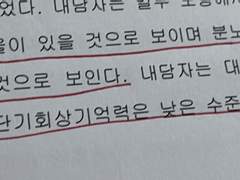 었다. 내담자는 일부
있을 것으로 보이며 분노
것으로 보인다. 내담자는 대
단기회상기억력은 낮은 수준